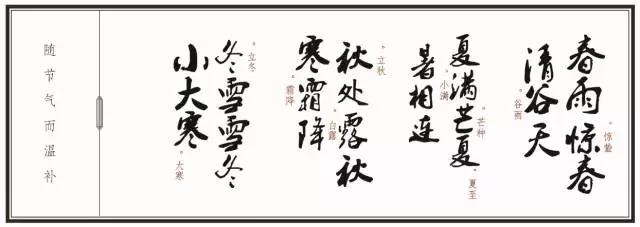 春雨惊春
惊蛰
清谷天
谷雨
夏满芒夏
芒种
夏至
暑相连
小满
立秋
秋处露秋
白露
寒霜降
霜降
立冬
冬雪雪冬
小大寒
大寒
随节气而温补